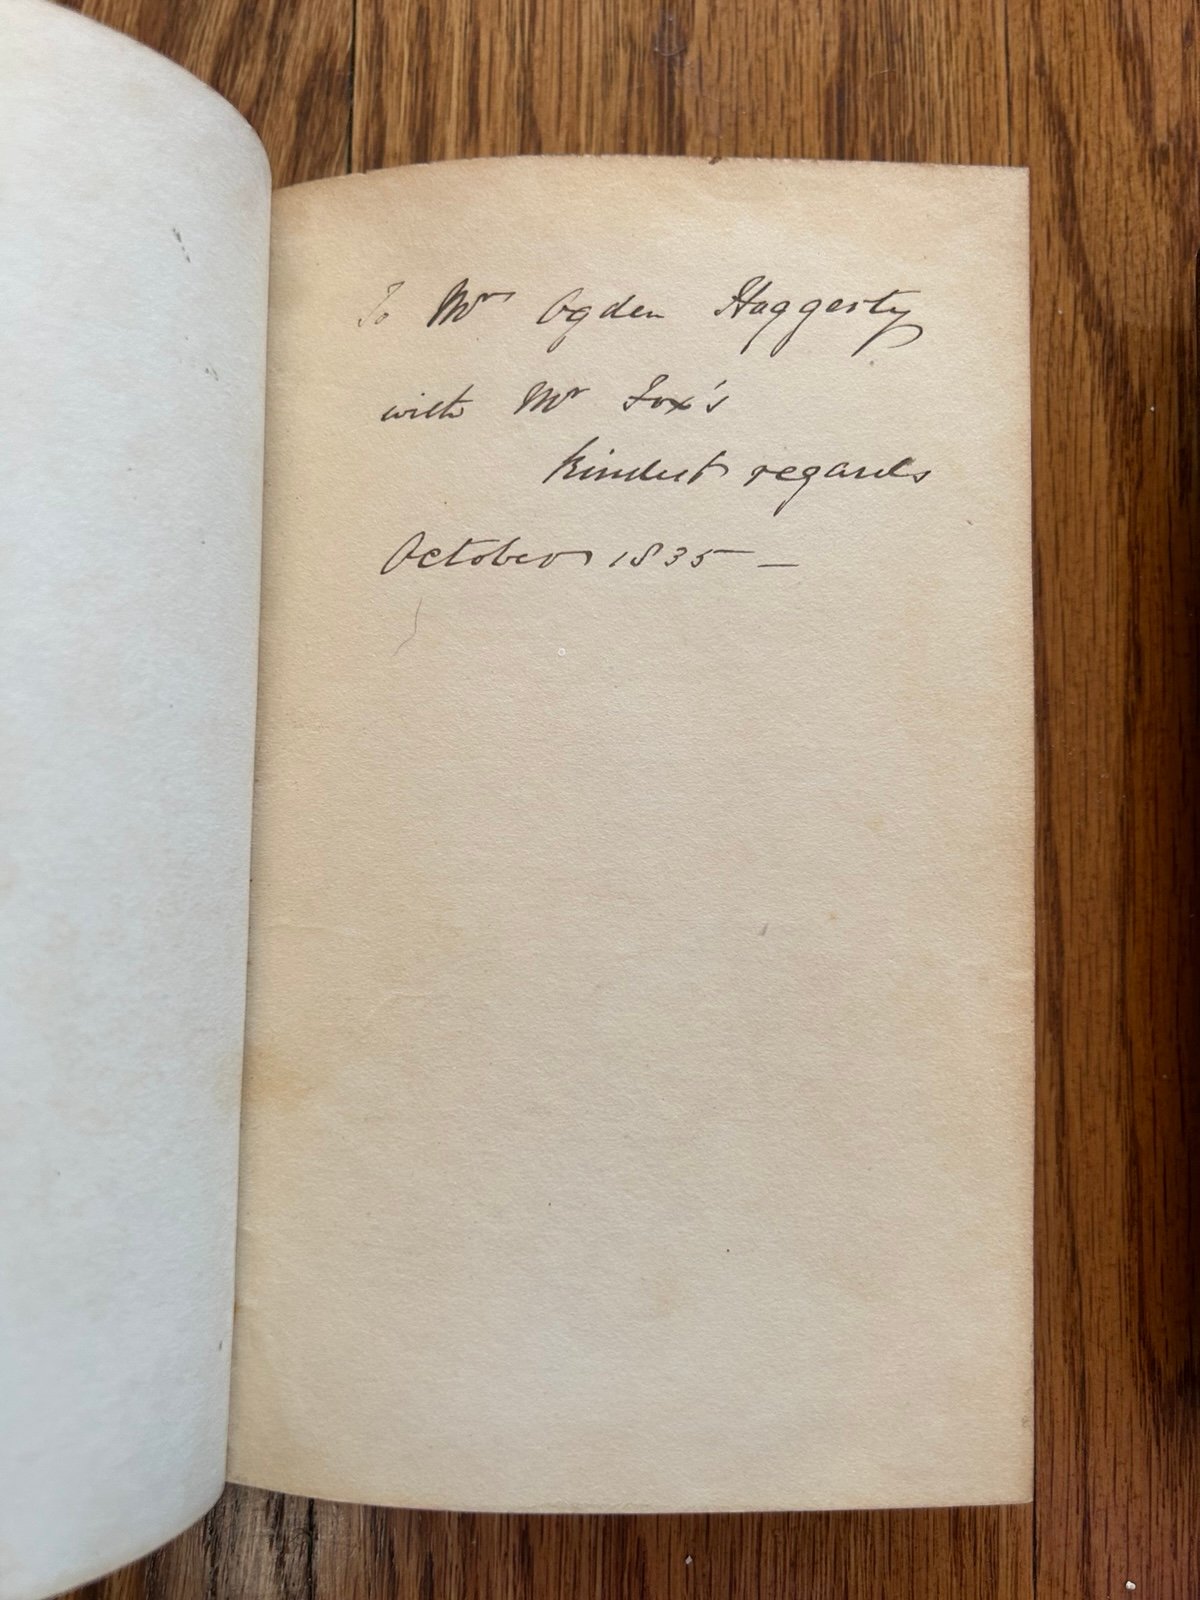 To Mrs Ogden Haggerty
with Mr Fox's
kindest regards
October 1835 —